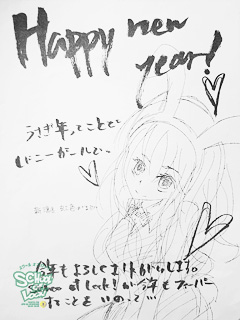 Happy new
year!
うさぎ年ってことで
バニーガールで、
今年もよろしくおねがいします。
School of Lock! が今年もフィーバー
することをいのって…